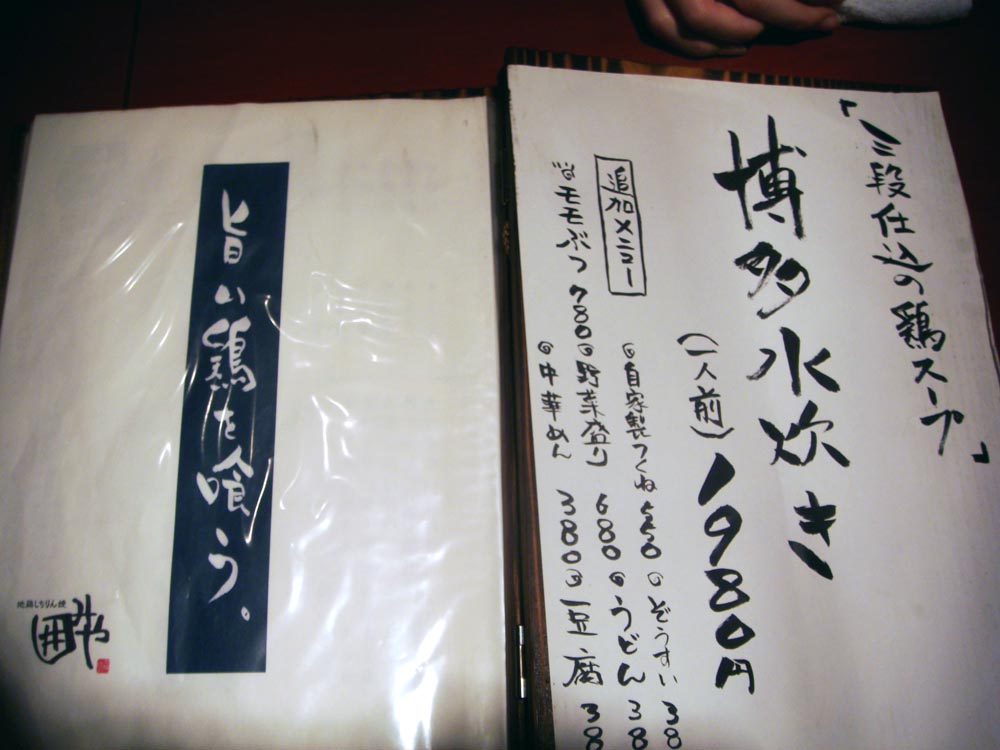 「三段仕込の鶏スープ」
博多水炊き
(一人前) 1980円
追加メニュー
◎自家製つくね 550 ◎ぞうすい 38
モモぶつ 780 ◎野菜盛り 680 ◎うどん 38
◎中華めん 380 ◎豆腐 38
旨い鶏を喰う。
地鶏しちりん焼